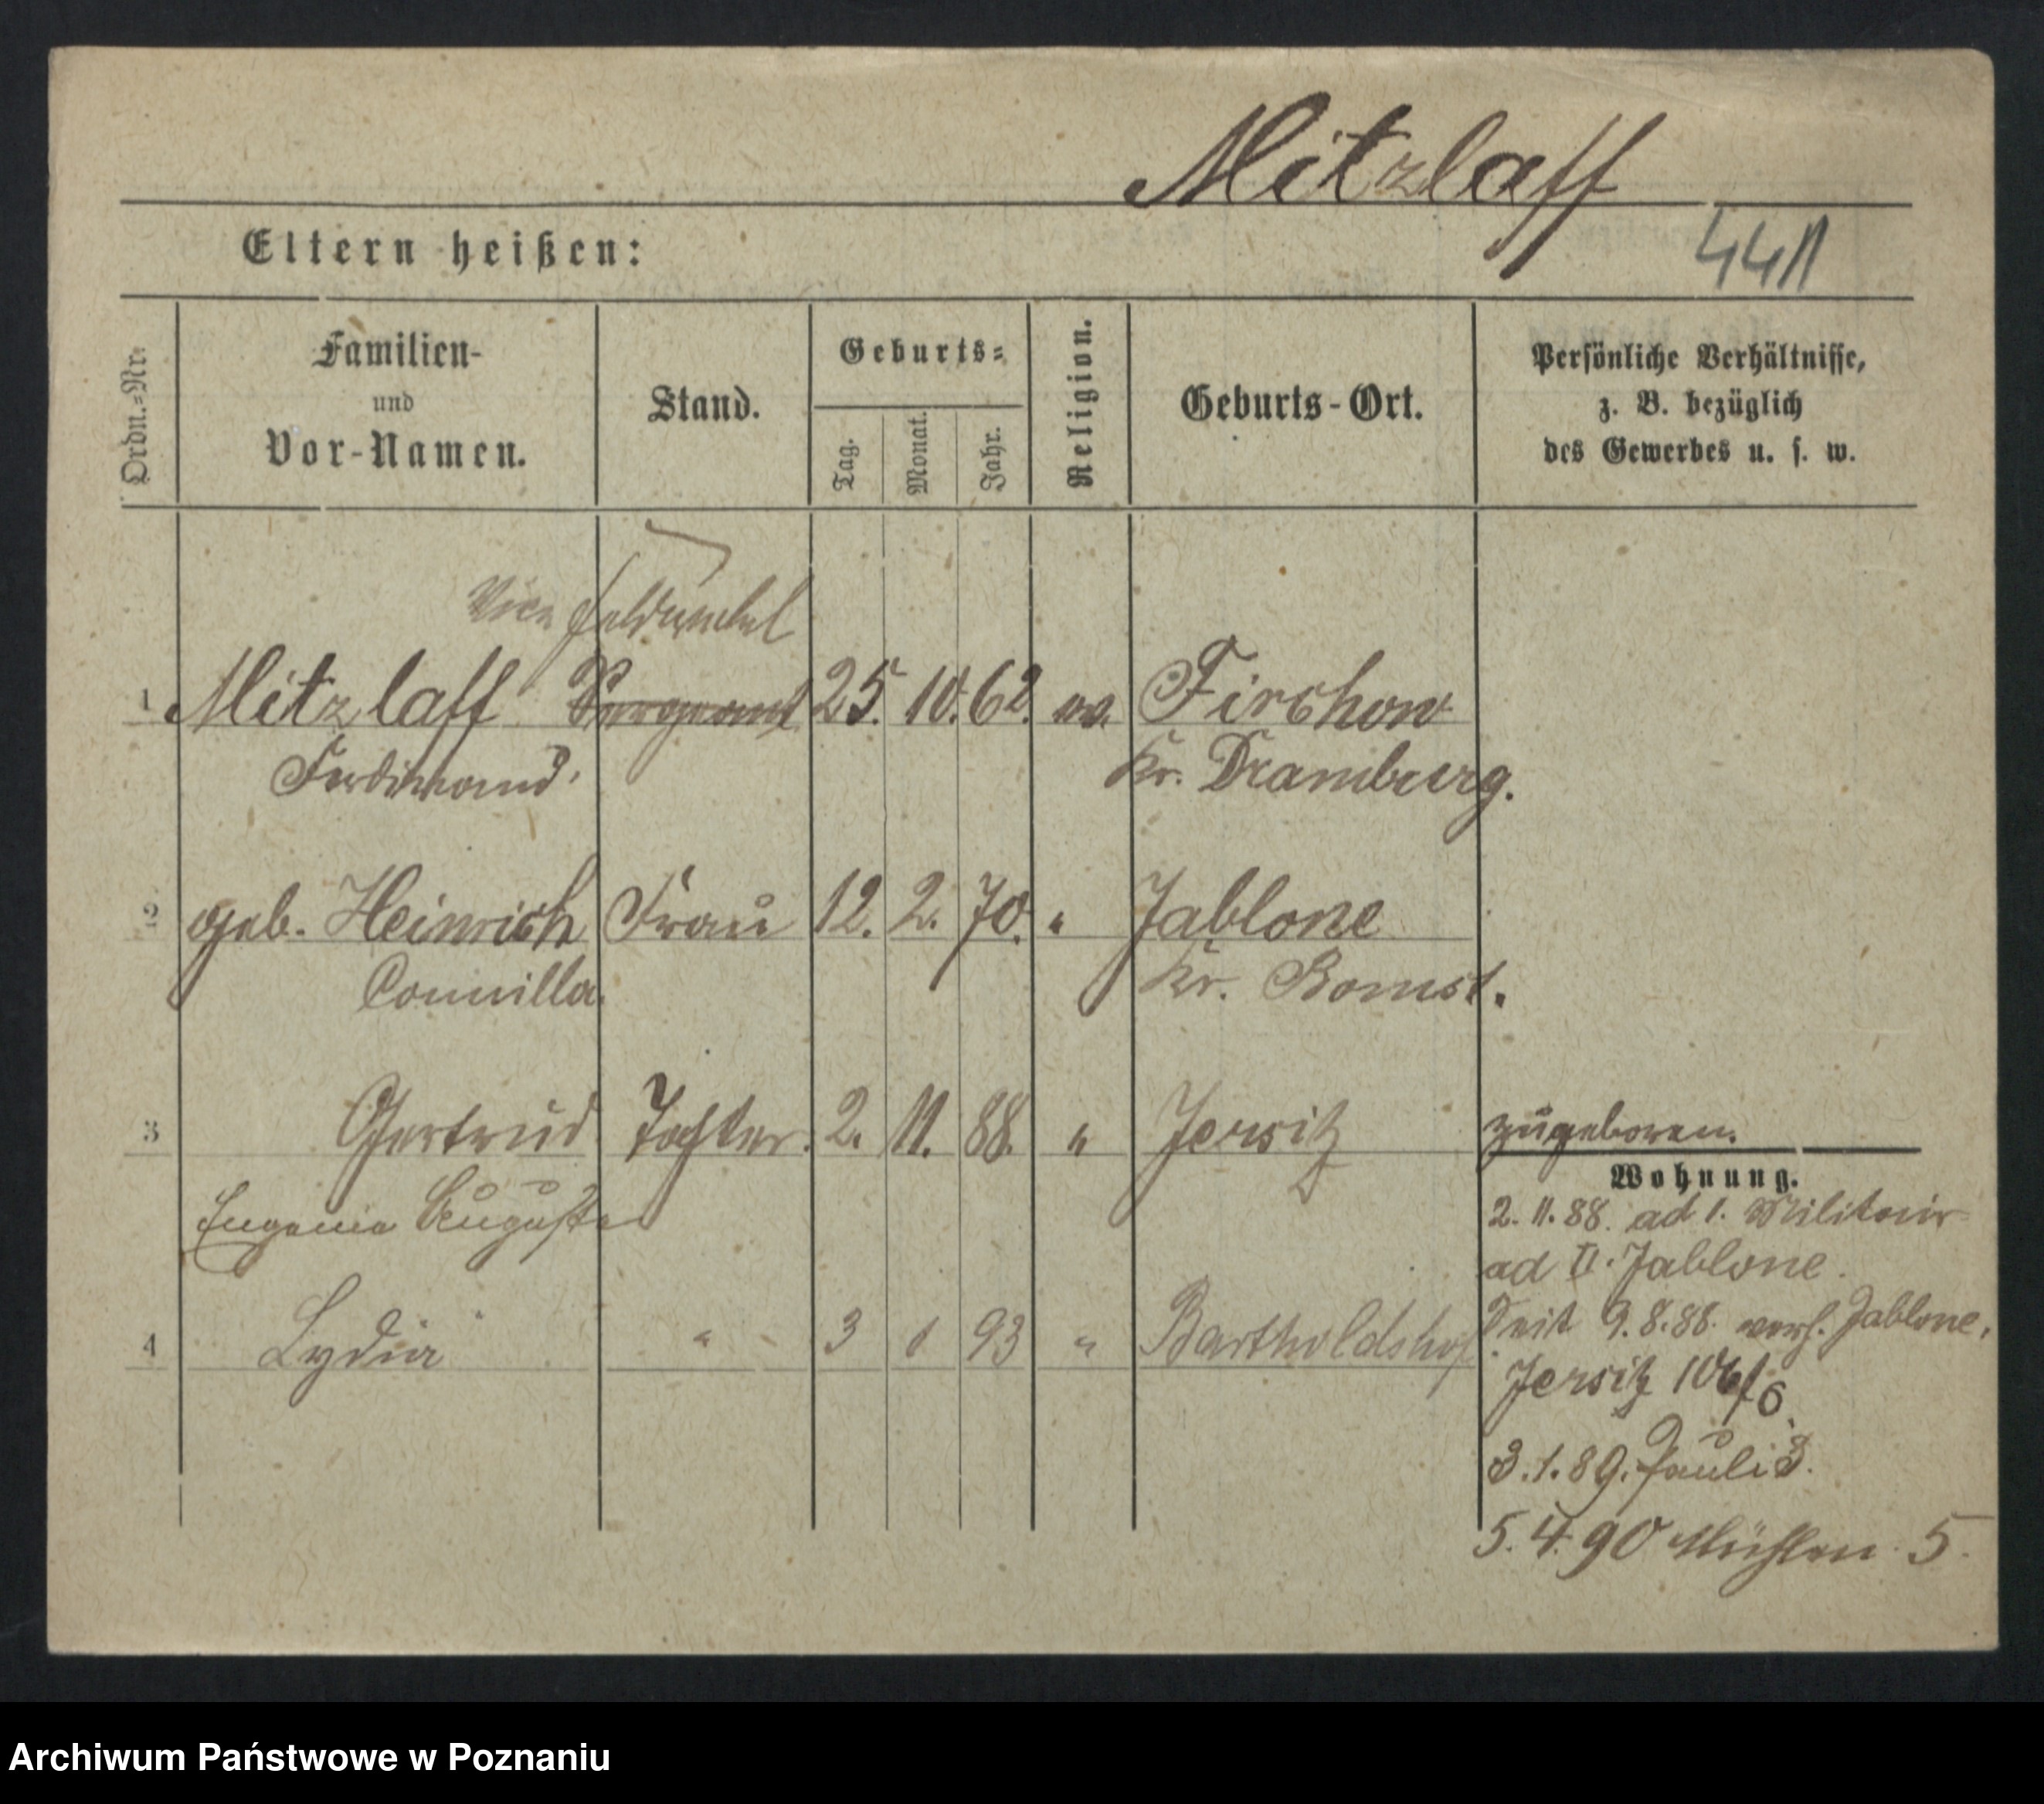 Mitzlaff
Eltern heißen:
4411
Ordn.-Nr.
Familien-
und
Vor-Namen.
Stand.
Geburts-
Tag.
Monat.
Jahr.
Religion.
Geburts-Ort.
Persönliche Verhältnisse,
z. B. bezüglich
des Gewerbes u. s. w.
Vice Feldwebel
1 Mitzlaff Sergeant 25. 10. 62. ev. Firchow
Ferdinand. Kr. Dramburg.
2 geb. Heinrich Frau 12. 2. 70. " Jablone
Kr. Bomst.
3 Gertrud Tochter. 2. 11. 88. " Jersitz zugeboren.
Eugenie Auguste
Wohnung.
2. 11. 88. ad 1. Militair
ad II. Jablone.
4 Lydia " 3 1 93 " Bartholdshof
Seit 9.8.88. verh. Jablone,
Jersitz
3.1.89. Pauli 3.
5.4.90 Mühlen. 5.
Archiwum Państwowe w Poznaniu